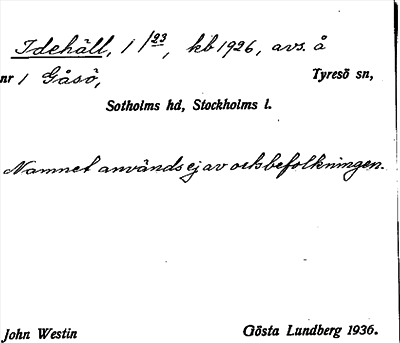 Idehäll, 1/23, kb 1926, avs. å
nr 1 Gåsö, Tyresö sn,
Sotholms hd, Stockholms l.
Namnet användsej av ortsbefolkningen.
John Westin Gösta Lundberg 1936.